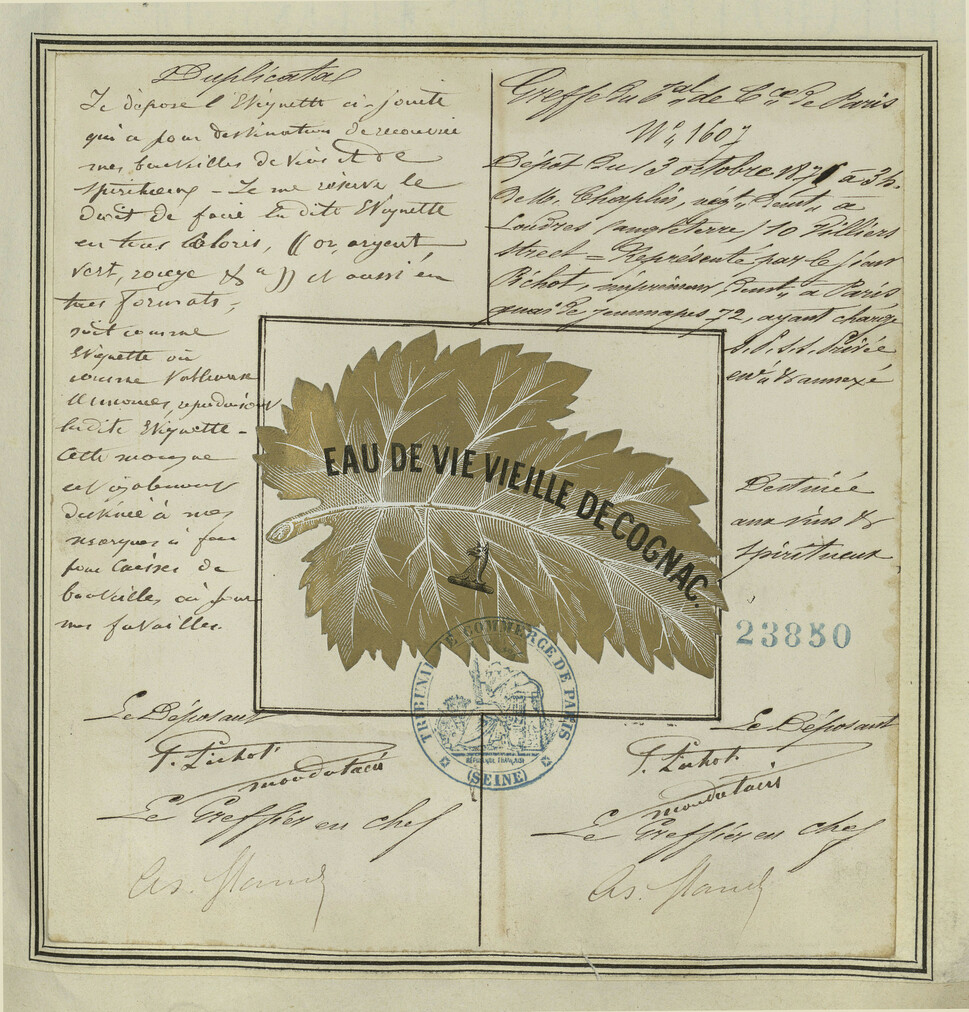 Duplicata
Je dépose l'Etiquette ci-jointe
qui a pour destination de recouvrir
mes bouteilles de vins et de
spiritueux - Je me réserve le
droit de faire ladite Etiquette
en tous coloris, ((or, argent
vert, rouge &a)) et aussi en
tous formats,
soit comme
Etiquette ou
comme
reproduisant
ladite Etiquette -
Cette marque
est également
destinée à mes
marques à feu
pour Caisses de
bouteilles ou pour
mes futailles.
Le Déposant
mandataire
Le Greffier en chef
Greffe du Tal de Cce de Paris
No 1607
Dépôt du 13 octobre 1876 à 3h.
de M. Chaplin, négt demt à
Londres (angleterre) 10 Villiers
street = Représenté par le sieur
Péchot, imprimeur, demt à Paris
quai de Jemmapes 72, ayant charge
s. s. privée
enr. & annexé
Destinée
aux vins &
spiritueux
23850
Le Déposant
mandataire
Le Greffier en chef
EAU DE VIE VIEILLE DE COGNAC.
TRIBUNAL DE COMMERCE DE PARIS
RÉPUBLIQUE FRANÇAISE
(SEINE)